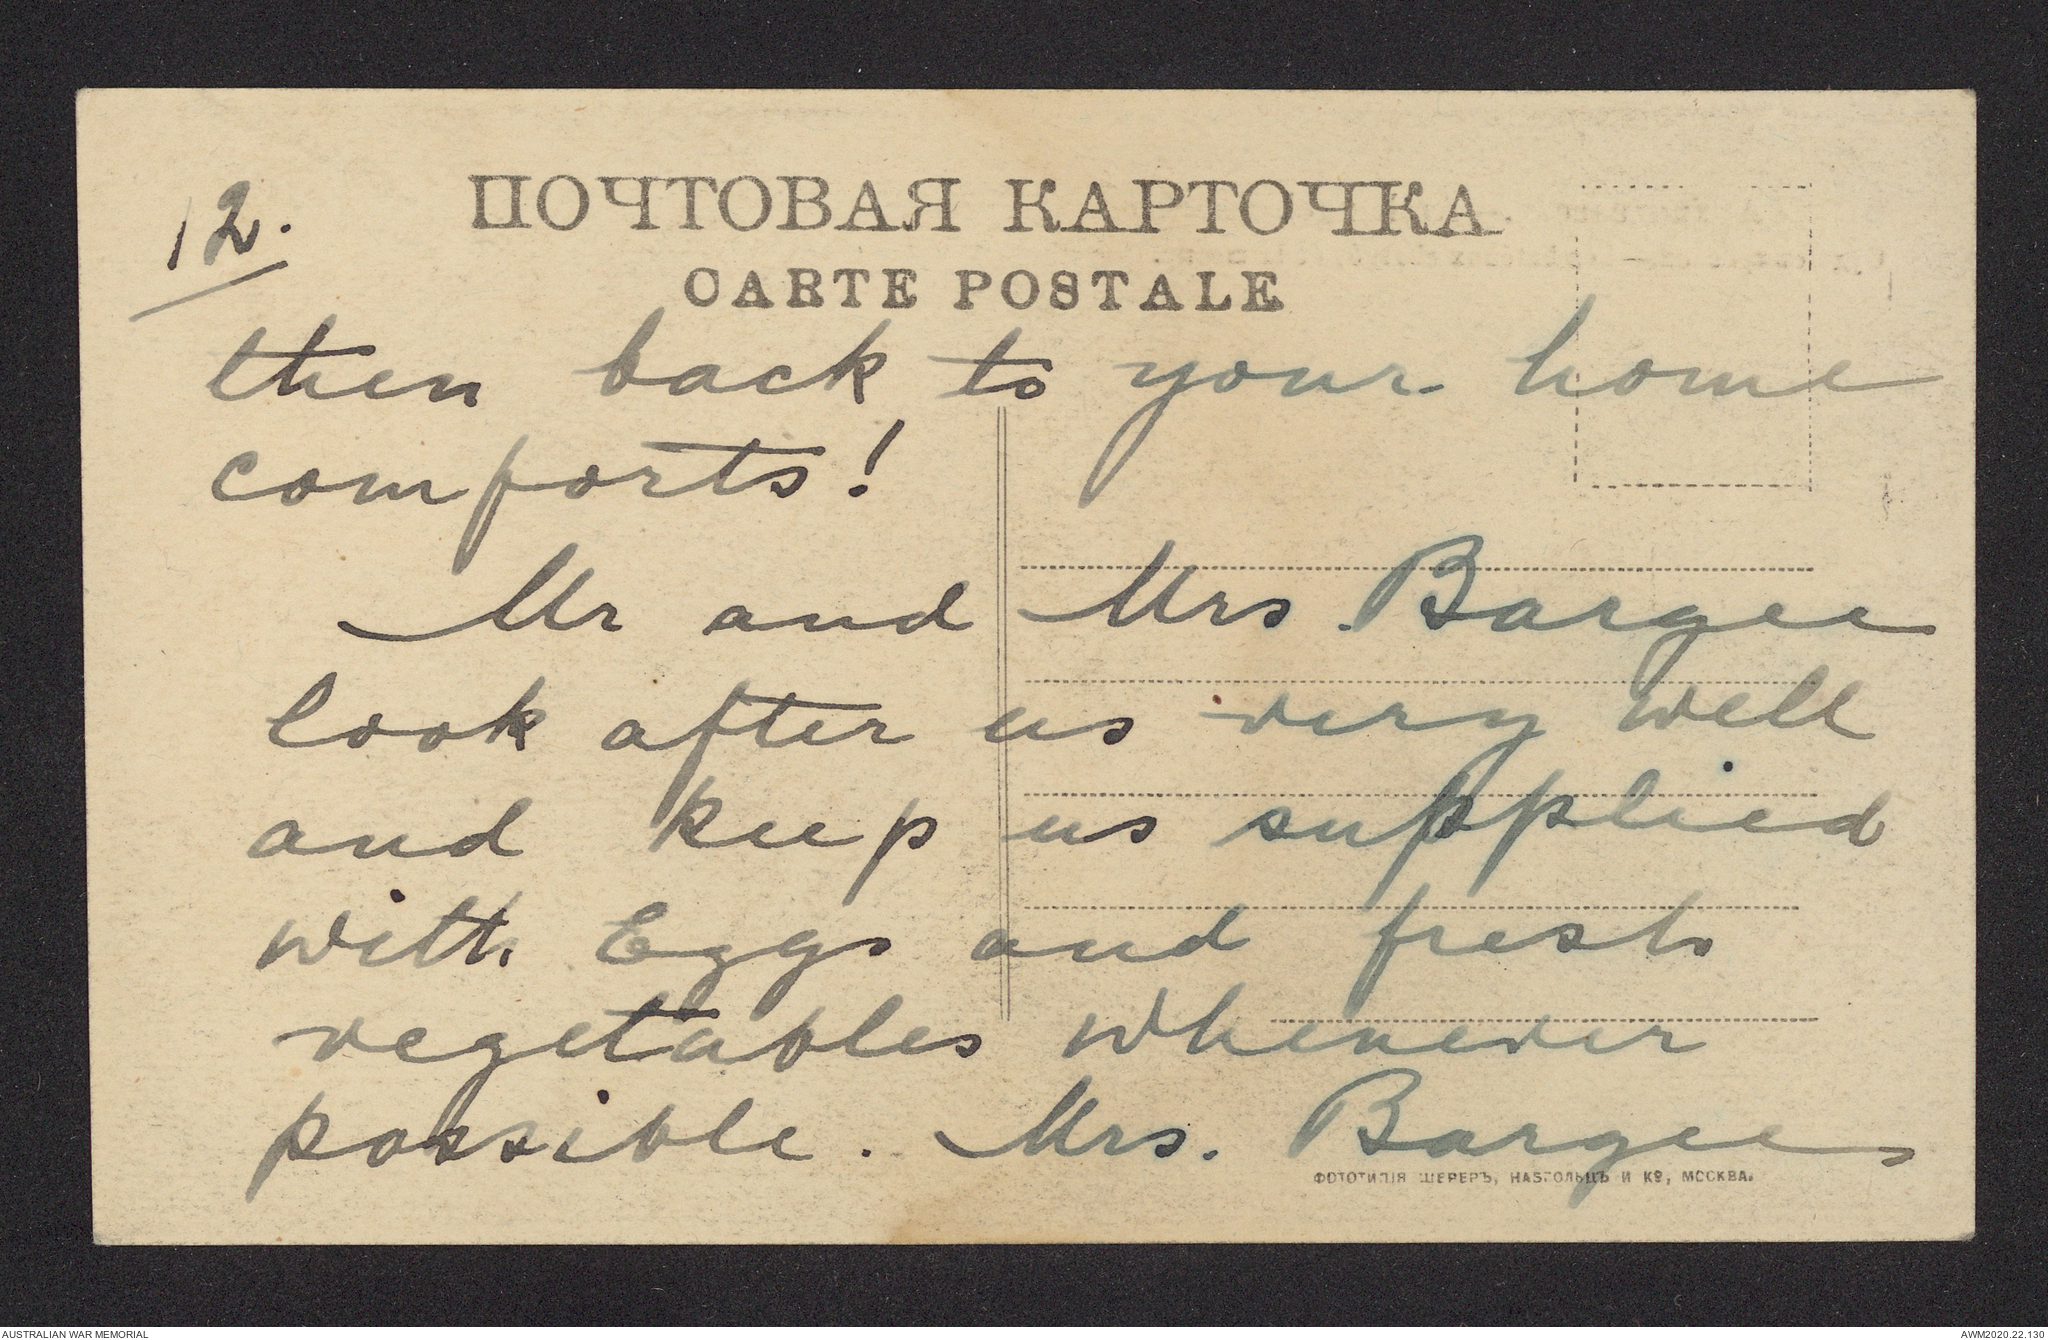 12.
ПОЧТОВАЯ КАРТОЧКА
CARTE POSTALE
then back to your home
comforts!
Mr and Mrs. Bargee
look after us very well
and keep us supplied
with Eggs and fresh
vegetables whenever
possible. Mrs. Bargee
ФОТОТИПІЯ ШЕРЕРЪ, НАБГОЛЬЦЪ И Кº, МОСКВА.
AUSTRALIAN WAR MEMORIAL
AWM2020.22.130